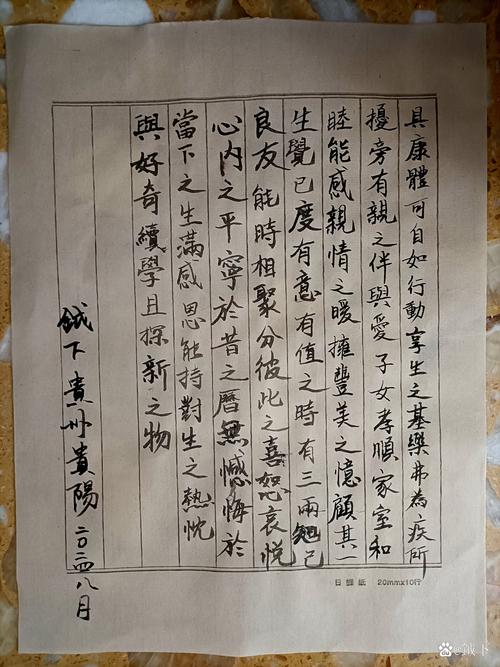 具康體可自如行動享生之基樂弗為疾所
擾旁有親之伴與愛子女孝順家室和
睦能感親情之暖擁豐美之憶顧其一
生覺已度有意有值之時有三兩知己
良友能時相聚分彼此之喜怒哀悅
心內之平寧於昔之曆無憾悔於
當下之生滿感恩能持對生之熱忱
與好奇續學且探新之物
鉞下貴州貴陽二〇二四八月
日課紙 20mmx10行
Bai百度 @鉞下